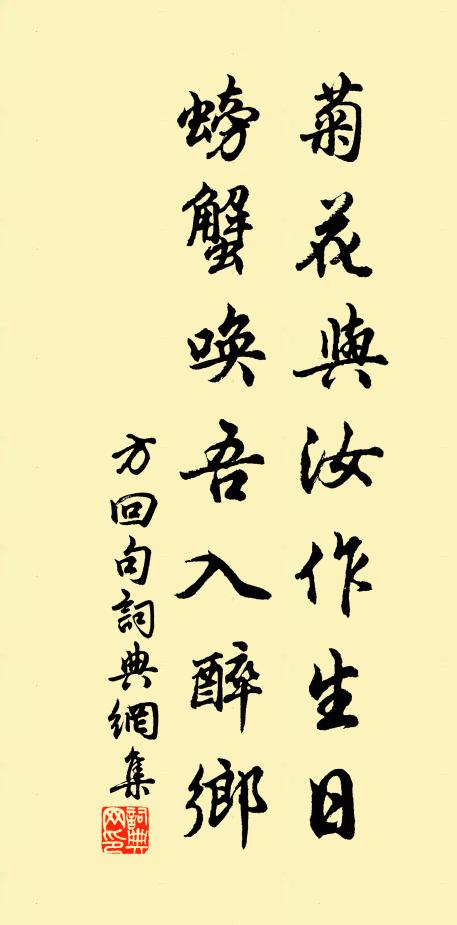 菊花與汝作生日
螃蟹喚吾入醉鄉
方回句詞典網集
詞典網印